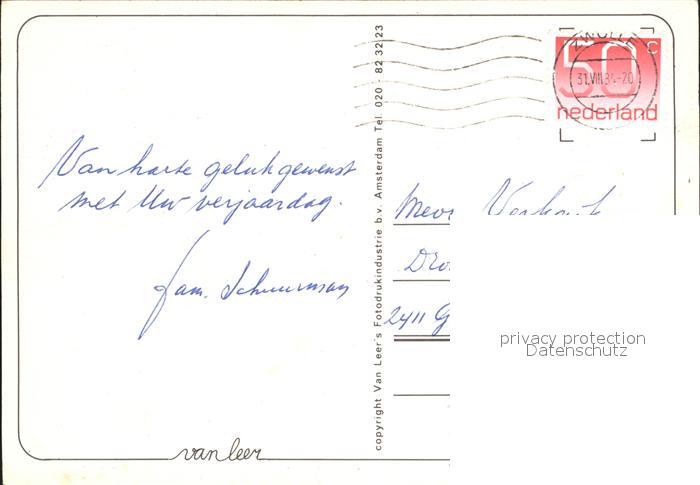 Van harte gelukgewenst
met Uw verjaardag.
fam. Schuurman
van leer
copyright Van Leer's Fotodrukindustrie b.v. Amsterdam Tel. 020 - 82 32 23
ZWOLLE
31.VIII.84-20
50 c
nederland
Mevr
2411 G
privacy protection
Datenschutz